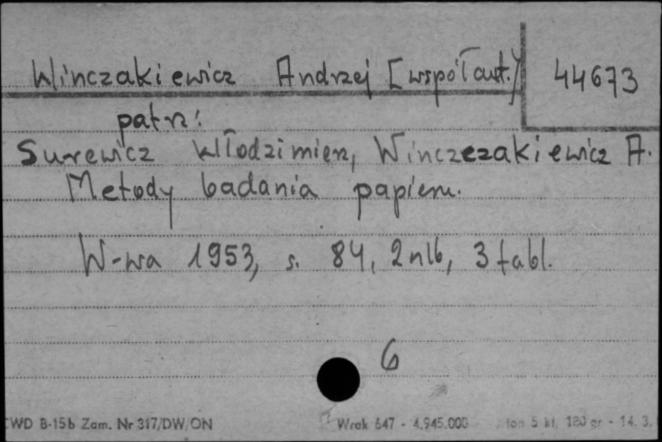 Winczakiewicz Andrzej [współaut.] 44673
patrz:
Surewicz Włodzimierz, Winczezakiewicz A.
Metody badania papieru.
W-wa 1953, s. 84, 2 nlb, 3 tabl.
6
CWD B-15b Zam. Nr 317/DW/ON Wrak 647 - 4.945.000 ton 5 kl. 180 gr - 14. 3.